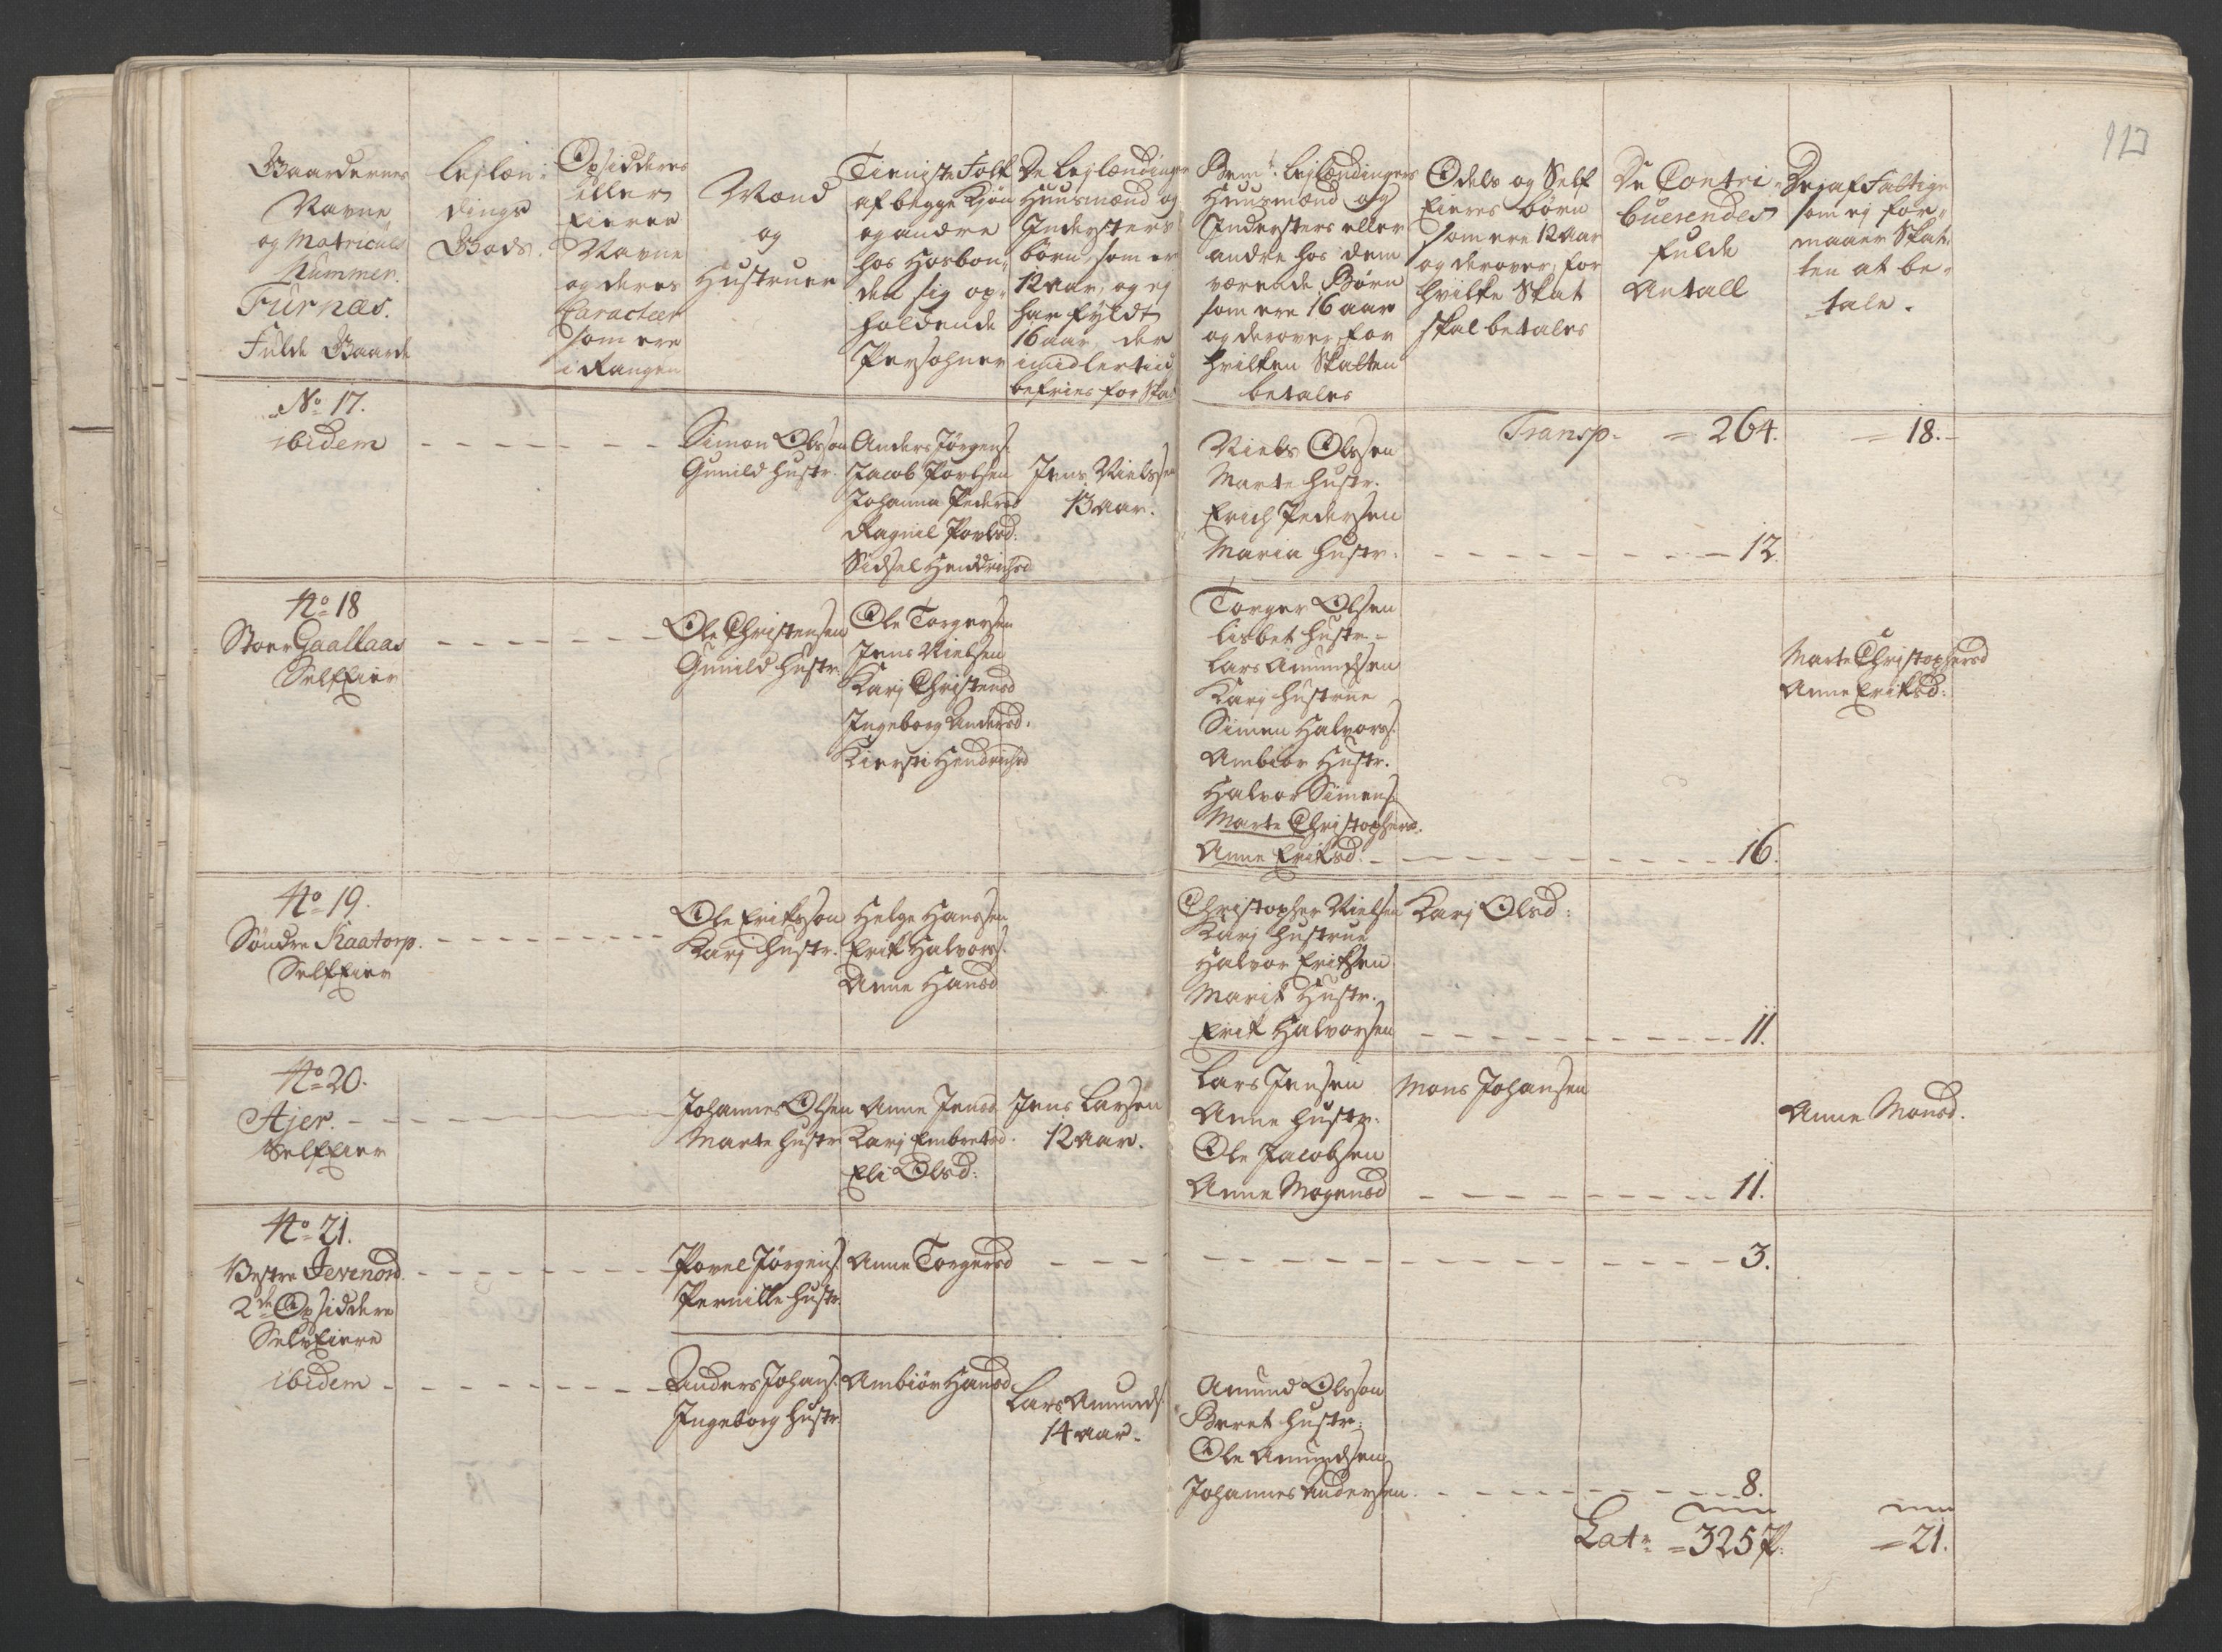 117
Gaardernes
Navne
og Matriculs
Nummer.
Furnæs.
Fulde Gaarde
Lejlæn-
dings
Bøds.
Opsidderes
eller
Eieres
Navne
og deres
Caracteer
som ere
i Rangen
Mand
og
Hustruer
Tieniste Folk
af begge Kiøn
og andre
hos Hosbon-
den sig op-
holdende
Persohner
De Lejlændinge
Huusmænd og
Inderster's
børn, som er
12 aar, og ej
har fyldt
16 aar, der
imidlertiid
befries for Skat
Bemte Lejlændingers
Huusmænd og
Indersters eller
andre hos dem
værende Børn
som ere 16 aar
og derover for
hvilken Skatten
betales
Odels og Self
Eieres børn
som ere 12 aar
og derover, for
hvilke Skat
skal betales
De Contri-
buerendes
fulde
Antall
De af Fattige
som ej for-
maaer Skat-
ten at be-
tale.
No 17.
ibidem
Simon Olsson
Gunild hustr.
Anders Jørgens.
Jacob Povlsen
Johanna Pedersd
Ragnil Povlsd:
Sidsel Hendrichsd
Jens Nielssen
13 aar.
Niels Olssen
Marte hustr.
Erich Pedersen
Maria hustr.
Transp. = 264. = 18.
12.
No 18
Stoer Gaallaas
SelfEier
Ole Christensen
Gunild hustr.
Ole Torgersen
Jens Nielsen
Karj Christensd
Ingeborg Andersd.
Kiersti Hendrichsd
Torger Olsen
Lisbet hustr.
Lars Amundsen
Karj hustrue
Simen Halvors.
Ambior Hustr.
Halvor Simens.
Marte Christophersd.
Anne Eriksd.
16.
Marte Christophersd
Anne Eriksd:
No 19.
Søndre Kaatorp.
SelfEier
Ole Eriksson
Karj hustr.
Helge Hanssen
Erik Halvors.
Anne Hansd
Christopher Nielsen
Karj hustrue
Halvor Eriksen
Marit Hustr.
Erik Halvorsen
Karj Olsd:
11.
No 20.
Ajer.
SelfEier
Johannes Olsen
Marte hustr
Anne Jensd
Karj Embretsd.
Eli Olsd:
Jens Larsen
12 aar.
Lars Jensen
Anne hustr.
Ole Jacobsen
Anne Mogensd
Mons Johansen
11.
Anne Monsd.
No 21.
Vestre Jevenord
2de Opsiddere
SelvEiere
Povel Jørgens.
Pernille hustr.
Anne Torgersd
3.
ibidem
Anders Johans.
Ingeborg hustr.
Ambiør Hansd
Lars Amunds.
14 aar.
Amund Olsson
Beret hustr:
Ole Amundsen
Johannes Andersen
8.
Latr = 325 P: = 21.